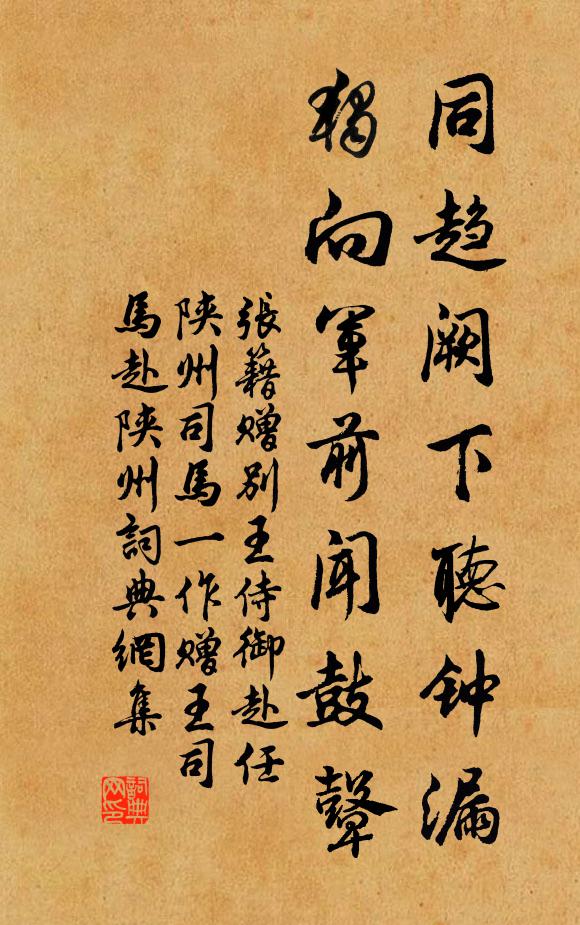 同趋阙下聽钟漏
獨向軍前闻鼓鼙
張籍赠别王侍御赴任
陝州司馬一作赠王司
馬赴陝州詞典網集
詞典网印